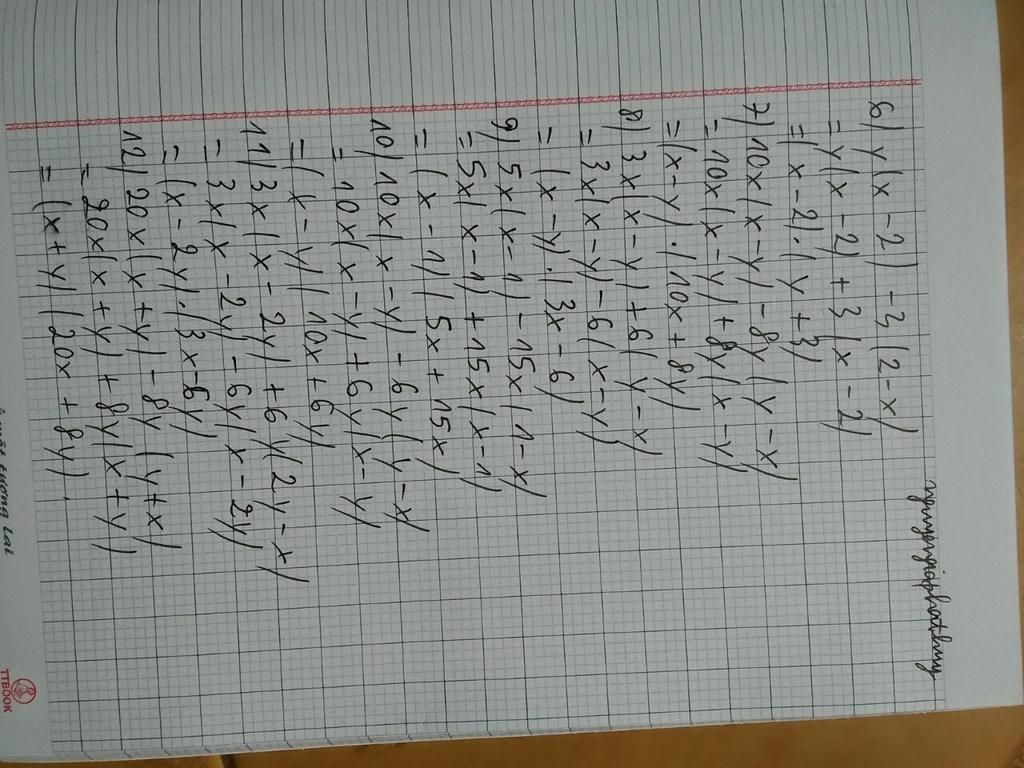 6) y(x-2) - 3(2-x)
= y(x-2) + 3(x-2)
= (x-2).(y+3)
7) 10x(x-y) - 8y(y-x)
= 10x(x-y) + 8y(x-y)
= (x-y).(10x+8y)
8) 3x(x-y) + 6(y-x)
= 3x(x-y) - 6(x-y)
= (x-y).(3x-6)
9) 5x(x-1) - 15x(1-x)
= 5x(x-1) + 15x(x-1)
= (x-1)(5x+15x)
10) 10x(x-y) - 6y(y-x)
= 10x(x-y) + 6y(x-y)
= (x-y)(10x+6y)
11) 3x(x-2y) + 6y(2y-x)
= 3x(x-2y) - 6y(x-2y)
= (x-2y).(3x-6y)
12) 20x(x+y) - 8y(y+x)
= 20x(x+y) + 8y(x+y)
= (x+y)(20x+8y).
tương lai
TTBOOK